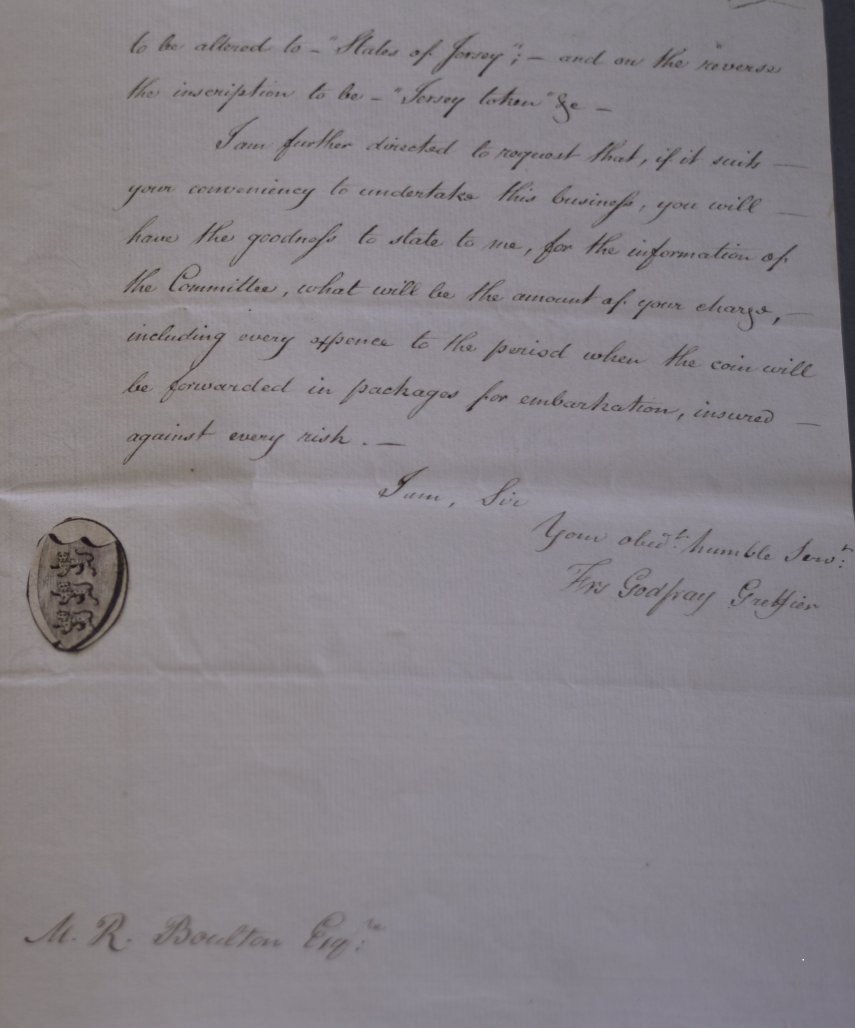 to be altered to – "States of Jersey"; – and on the reverse
the inscription to be – "Jersey token" &c –
I am further directed to request that, if it suits —
your conveniency to undertake this business, you will —
have the goodness to state to me, for the information of
the Committee, what will be the amount of your charge, —
including every expence to the period when the coin will
be forwarded in packages for embarkation, insured —
against every risk. —
I am, Sir
Your obedt. humble Servt:
Frs Godfray Greffier
M. R. Boulton Esqre: